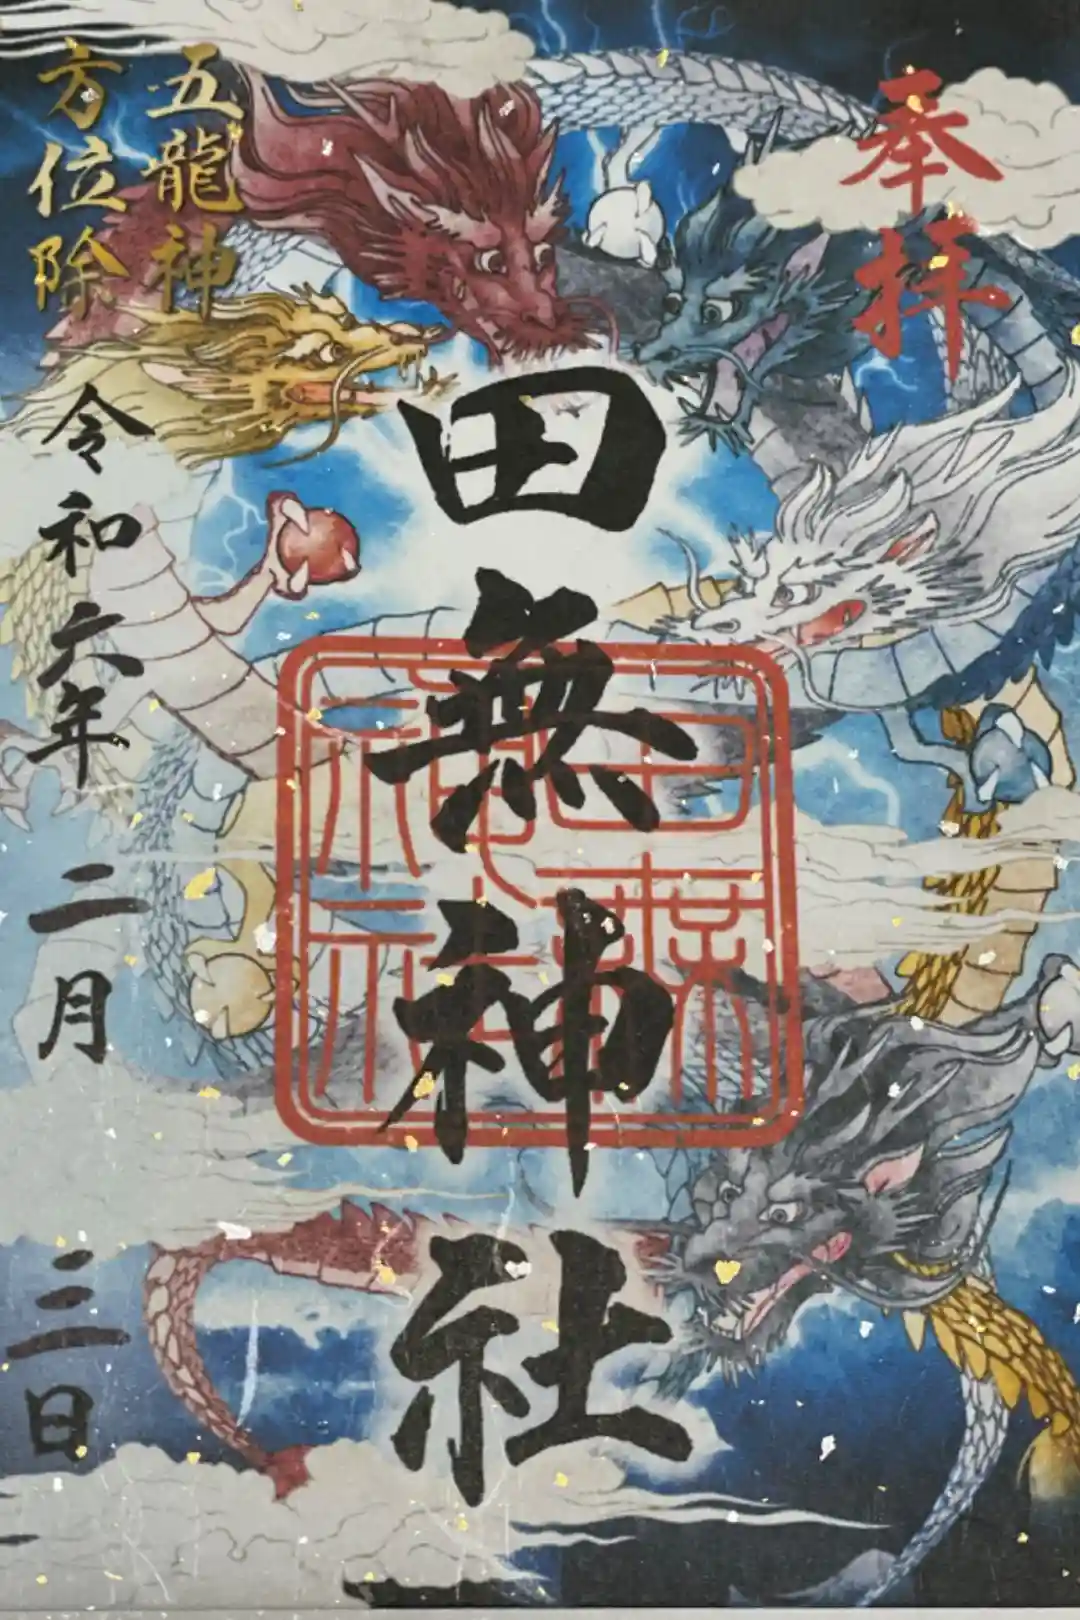 奉拝
田無神社
田無神社
五龍神
方位除
令和六年二月三日